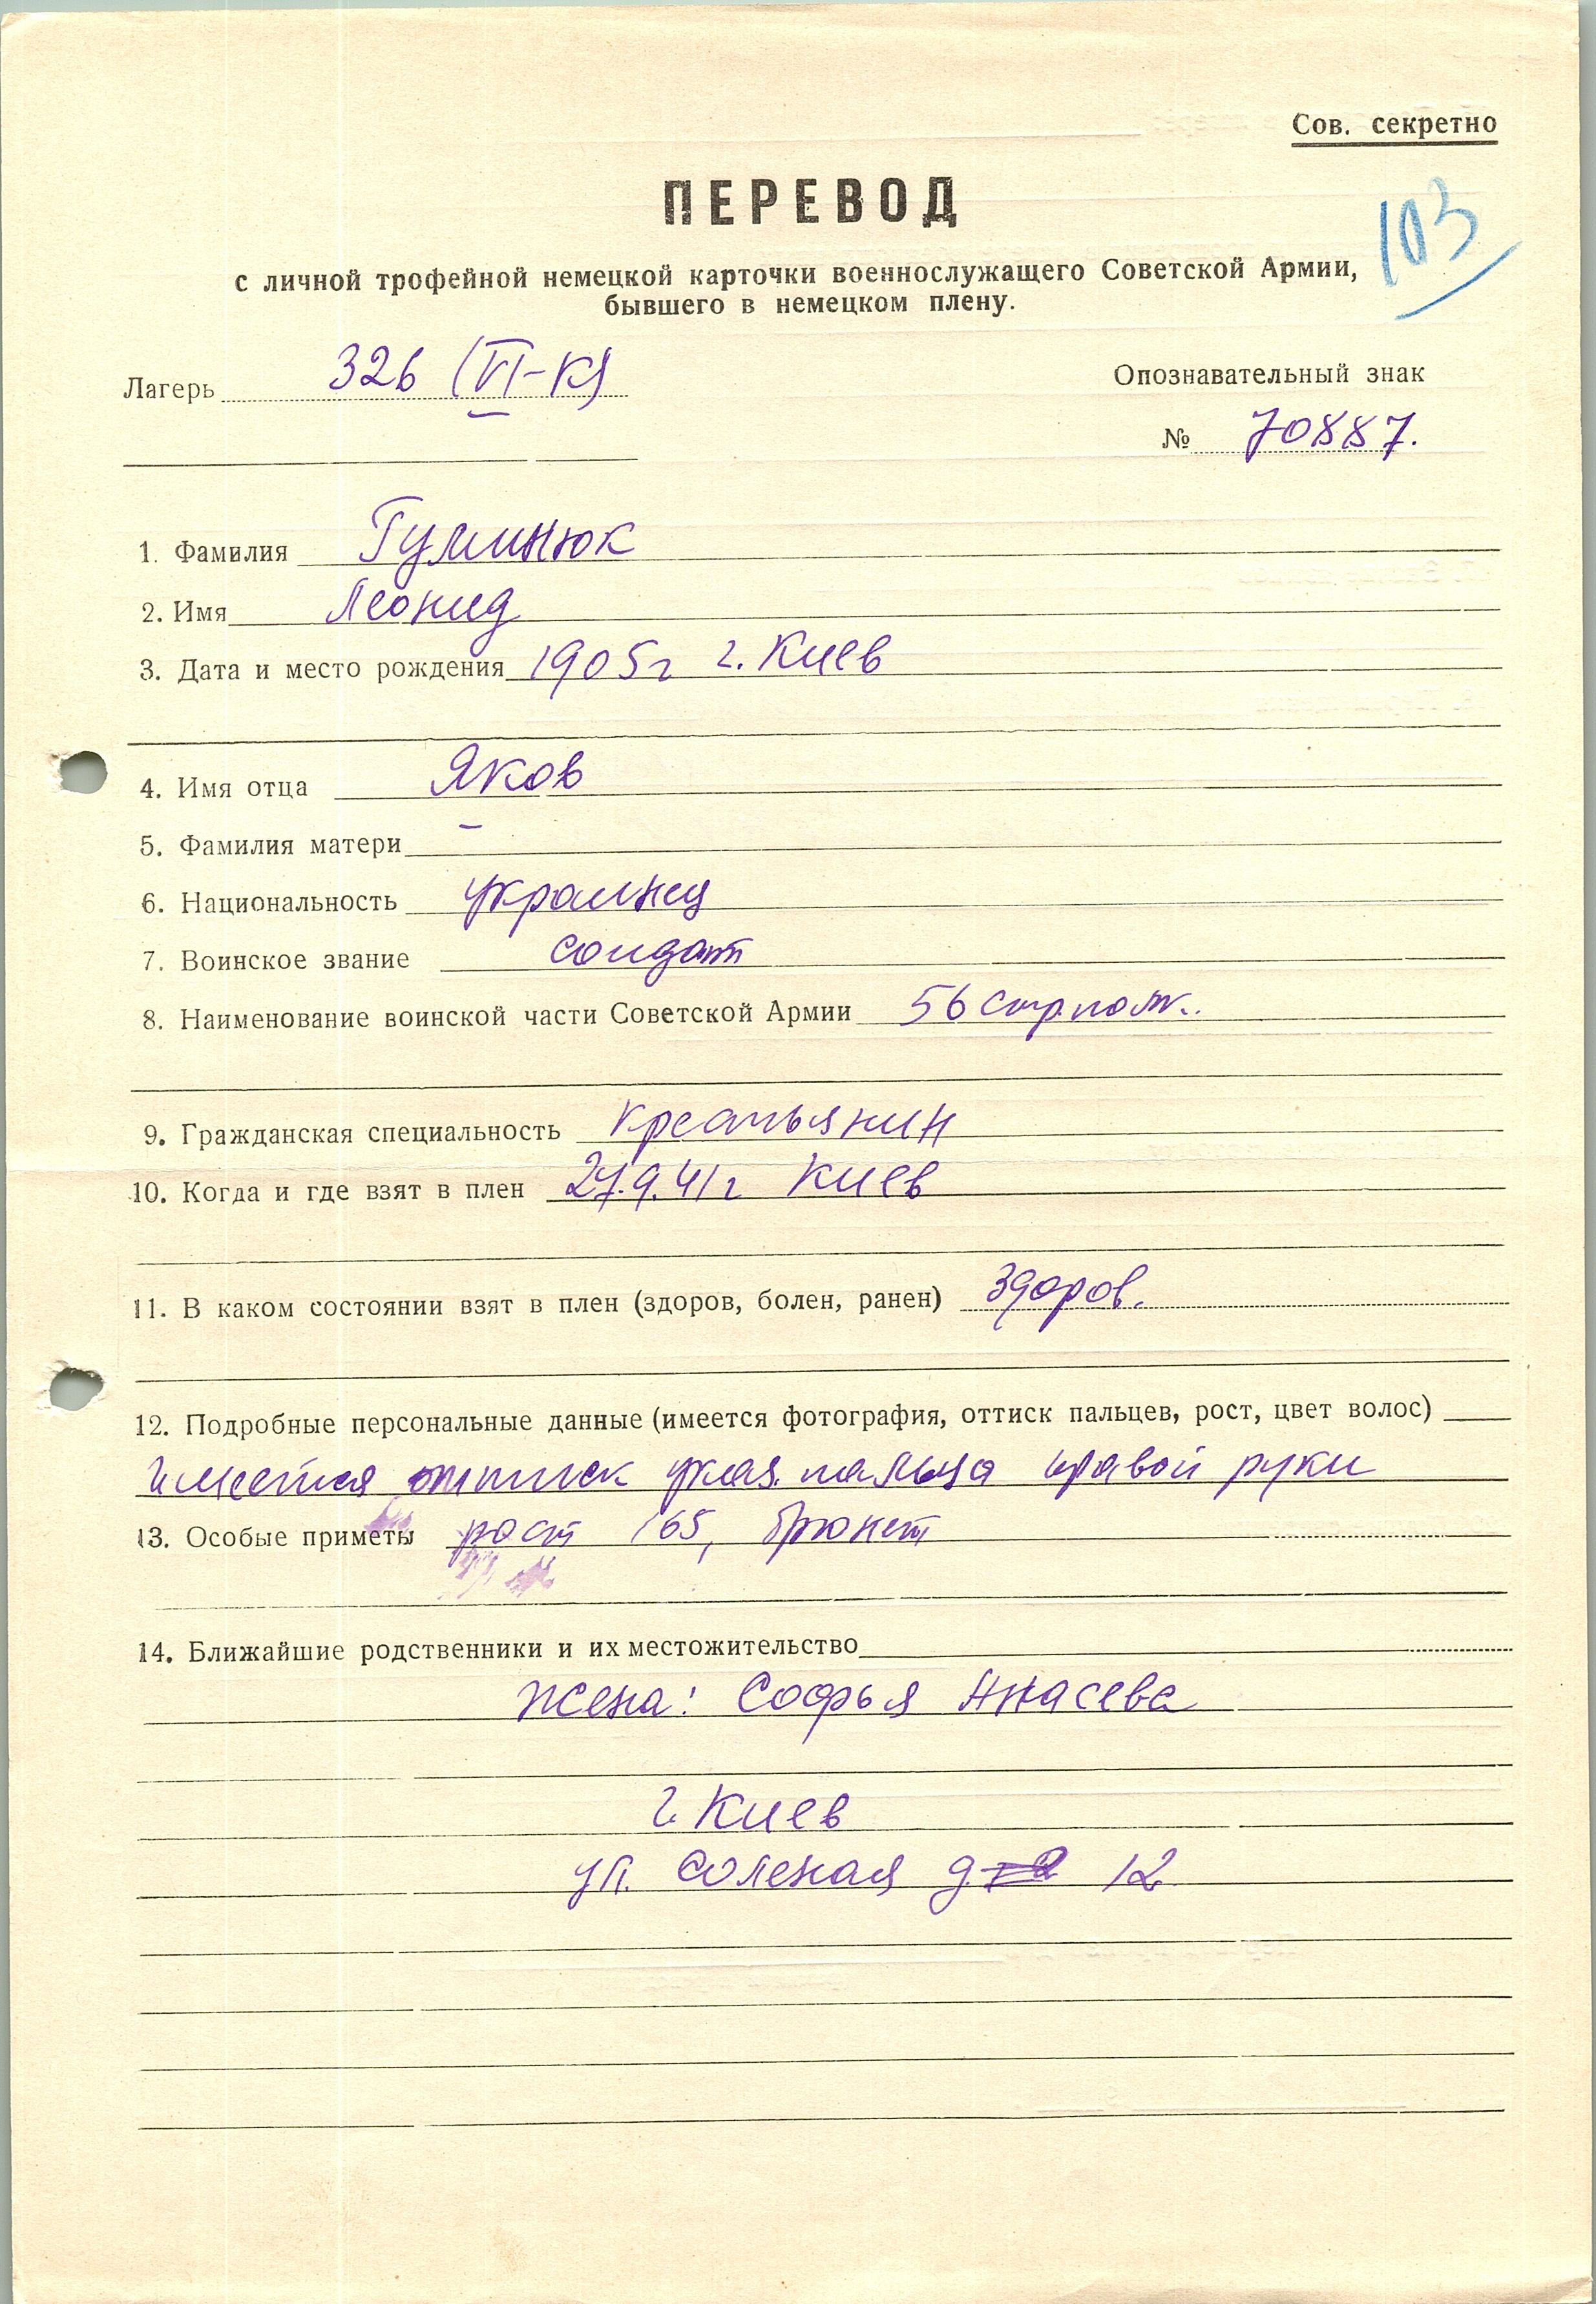 Сов. секретно
ПЕРЕВОД
103
с личной трофейной немецкой карточки военнослужащего Советской Армии,
бывшего в немецком плену.
Лагерь 326 (VI-К)
Опознавательный знак
№ 70887.
1. Фамилия Гуминюк
2. Имя Леонид
3. Дата и место рождения 1905г г. Киев
4. Имя отца Яков
5. Фамилия матери –
6. Национальность украинец
7. Воинское звание солдат
8. Наименование воинской части Советской Армии 56 стр. полк.
9. Гражданская специальность крестьянин
10. Когда и где взят в плен 27.9.41г Киев
11. В каком состоянии взят в плен (здоров, болен, ранен) здоров.
12. Подробные персональные данные (имеется фотография, оттиск пальцев, рост, цвет волос)
имеется оттиск указ. пальца правой руки
13. Особые приметы рост 165, брюнет
14. Ближайшие родственники и их местожительство
жена: Софья
г. Киев
ул. Соленая д. 12